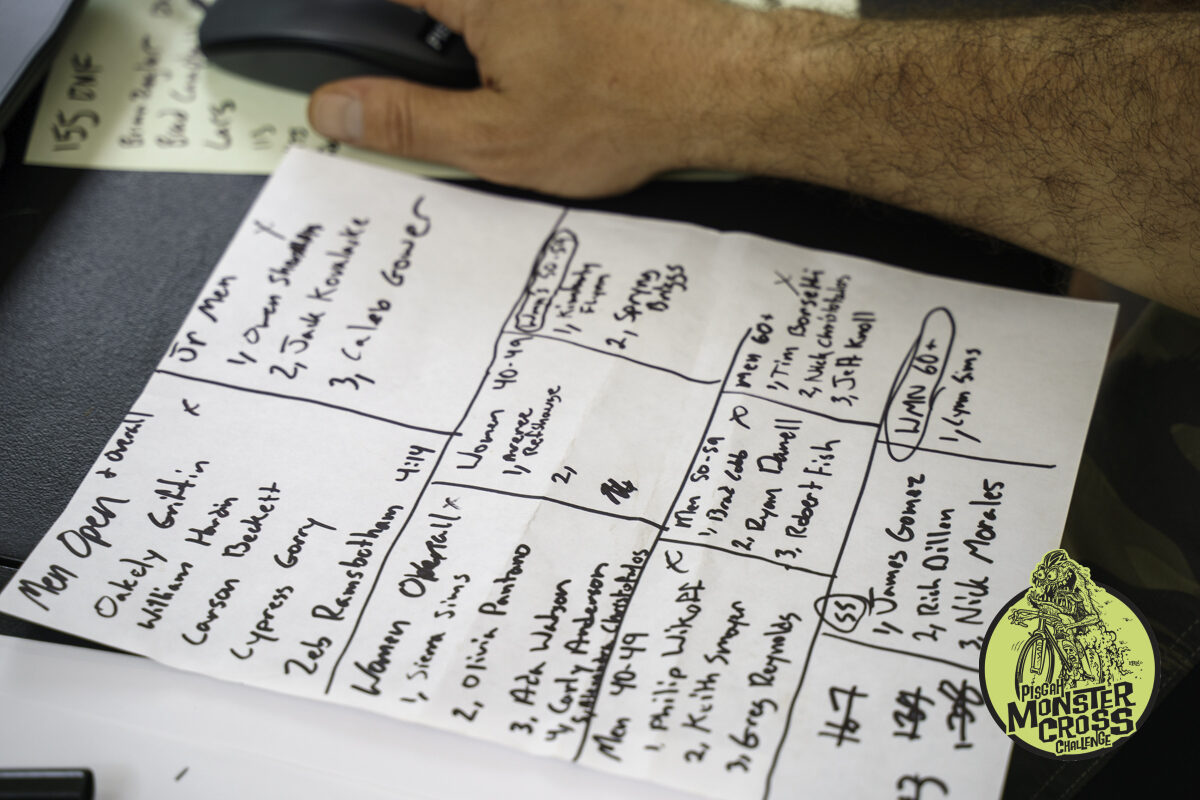 155 DNF
Jr Men
1, Owen
2, Jack Kovalaske
3, Caleb Gower
Men Open + overall x
Oakely Griffin
William Hardin
Carson Beckett
Cypress Gorry
Zeb Ramsbottham 4:14
Wmns 50-59
1, Kimberly
Flynn
2, Spring
Briggs
Women 40-49
1,
2,
Women Overall x
1, Sierra Sims
2, Olivia Pantano
3, Ada Watson
4, Carly Anderson
5, Alexandra Christofalos
Men 60+ x
1, Tim Borsetti
2, Nick
3, Jeff Knoll
Men 50-59 x
1, Brad Cobb
2, Ryan Danell
3, Robert Fish
Men 40-49 x
1. Philip Wikoff
2, Keith
3, Greg Reynolds
WMN 60+
1, Lynn Sims
SS
1, James Gomez
2, Rich Dillon
3. Nick Morales
167
PISGAH
MONSTER
CROSS
CHALLENGE